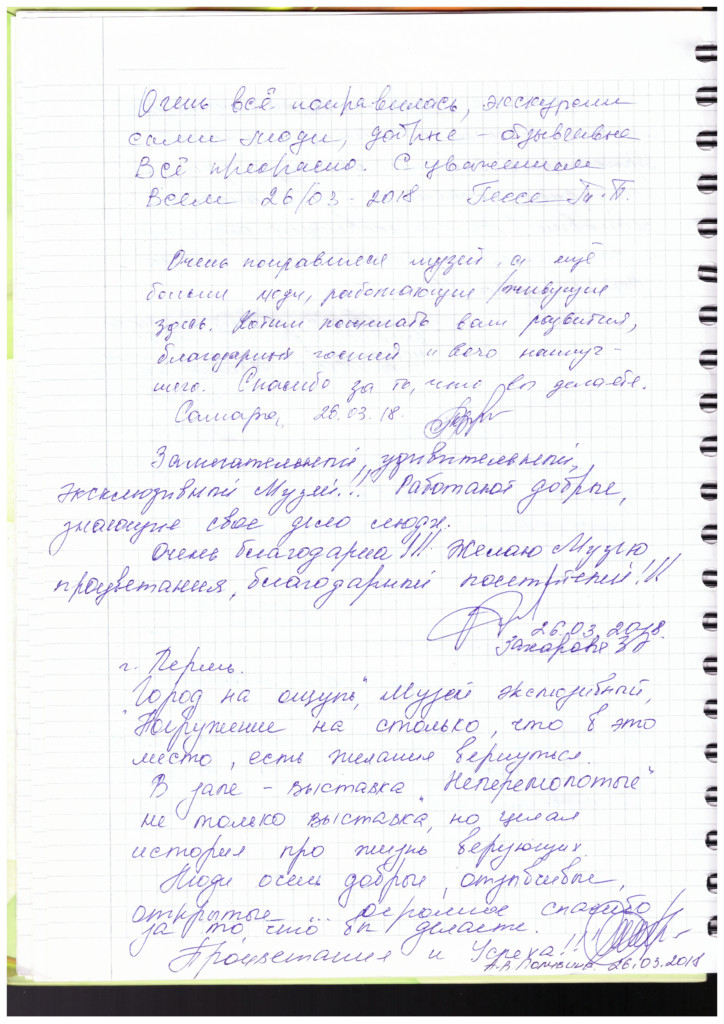 Очень всё понравилась, экскурсии
сами люди, добрые - отзывчивые
Всё прекрасно. С уважением
Всем 26/03-2018 Гессе Т.П.
Очень понравился музей, а ещё
больше люди, работающие/живущие
здесь. Хотим пожелать вам развития,
благодарных гостей и всего наилуч-
шего. Спасибо за то, что вы делаете.
Самара, 26.03.18.
Замечательный, удивительный,
эксклюзивный Музей!!! Работают добрые,
знающие свое дело люди.
Очень благодарна!!! Желаю Музею
процветания, благодарных посетителей!!!
26.03.2018.
Захарова
г. Пермь.
"Город на ощупь", Музей эксклюзивный,
Погружение на столько, что в это
место, есть желания вернуться.
В зале - выставка "Неперемолотые"
не только выставка, но целая
история про жизнь верующих
Люди осень добрые, отзывчивые,
открытые... огромное спасибо
за то, что вы делаете.
Процветания и Успеха!!!
А.В. 26.03.2018